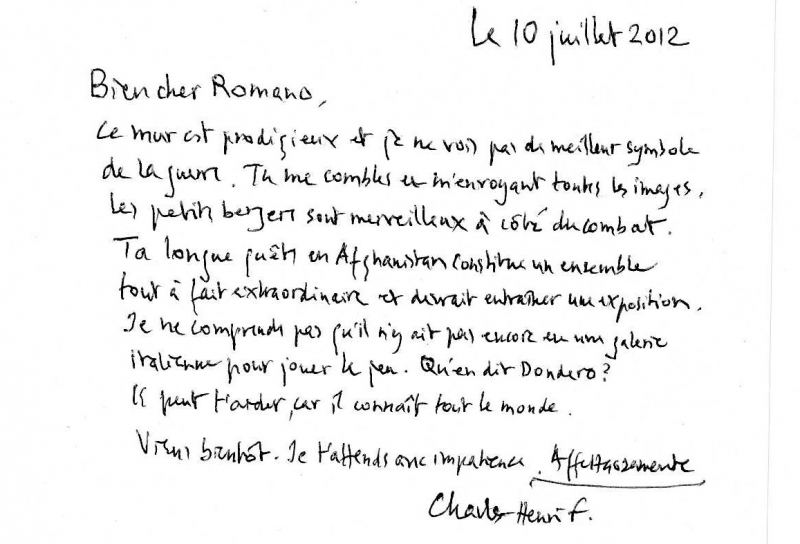 Le 10 juillet 2012
Bien cher Romano,
Ce mur est prodigieux et je ne vois pas de meilleur symbole
de la guerre. Tu me combles en m'envoyant toutes les images.
Les petits bergers sont merveilleux à côté du combat.
Ta longue quête en Afghanistan constitue un ensemble
tout à fait extraordinaire et devrait entraîner une exposition.
Je ne comprends pas qu'il n'y ait pas encore eu une galerie
italienne pour jouer le jeu. Qu'en dit Dondero?
Il peut t'aider, car il connaît tout le monde.
Viens bientôt. Je t'attends avec impatience. Affettuosamente
Charles-Henri F.